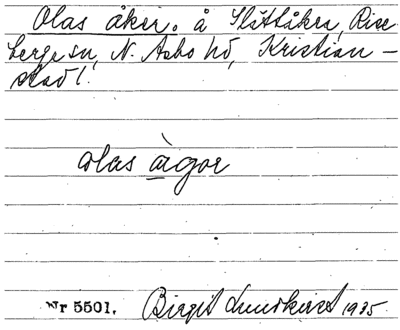 Olas åker. å Slättåkra, Rise-
berga sn, N. Åsbo hd, Kristian-
stad l.
olas àgor
Nr 5501. Birgit Lundkvist 1935